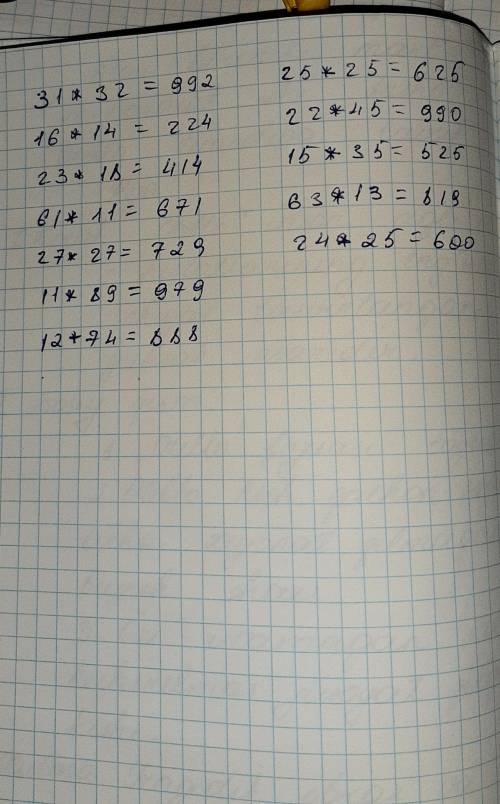 31 * 32 = 992
16 * 14 = 224
23 * 18 = 414
61 * 11 = 671
27 * 27 = 729
11 * 89 = 979
12 * 74 = 888
25 * 25 = 625
22 * 45 = 990
15 * 35 = 525
63 * 13 = 819
24 * 25 = 600